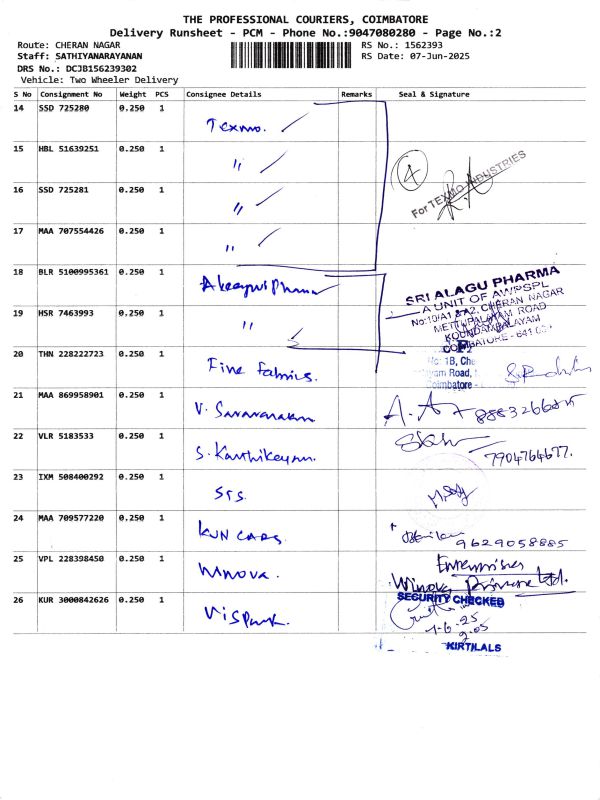 THE PROFESSIONAL COURIERS, COIMBATORE
Delivery Runsheet - PCM - Phone No.:9047080280 - Page No.:2
Route: CHERAN NAGAR RS No.: 1562393
Staff: SATHIYANARAYANAN RS Date: 07-Jun-2025
DRS No.: DCJB156239302
Vehicle: Two Wheeler Delivery
S No Consignment No Weight PCS Consignee Details Remarks Seal & Signature
14 SSD 725280 0.250 1 Texmo.
15 HBL 51639251 0.250 1 "
4
For TEXMO INDUSTRIES
16 SSD 725281 0.250 1 "
17 MAA 707554426 0.250 1 "
18 BLR 5100995361 0.250 1
SRI ALAGU PHARMA
A UNIT OF AWPSPL
No:10/A1 & A2, CHERAN NAGAR
METTUPALAYAM ROAD
KOUNDAMPALAYAM
COIMBATORE - 641
19 HSR 7463993 0.250 1 "
20 THN 228222723 0.250 1 Fine fabrics.
No: 1B, Che
Road,
Coimbatore -
21 MAA 869958901 0.250 1 V. Saravanakumar
22 VLR 5183533 0.250 1 S. Karthikeyan.
7904764677.
23 IXM 508400292 0.250 1 STS.
24 MAA 709577220 0.250 1 KUN CARS.
9629058885
25 VPL 228398450 0.250 1 Winova.
Enterprises
Winova Private Ltd.
26 KUR 3000842626 0.250 1
SECURITY CHECKED
7-6-25
2.05
KIRTILALS